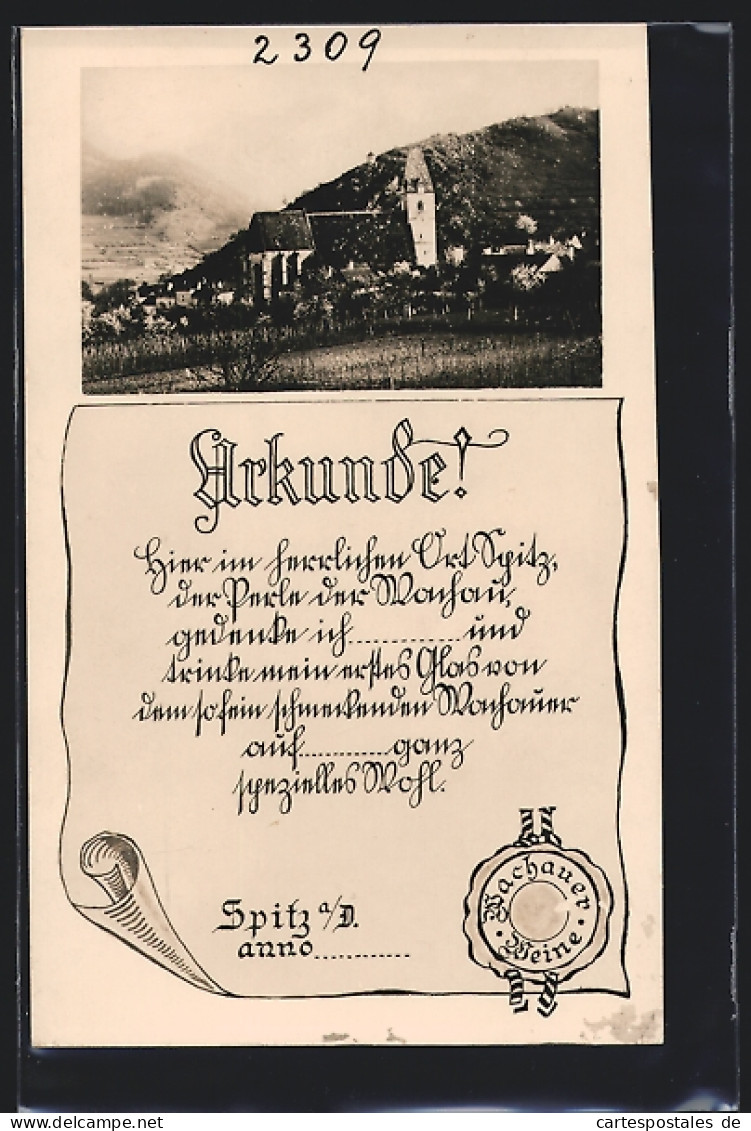 2309
Urkunde!
Hier im herrlichen Ort Spitz,
der Perle der Wachau,
gedenke ich ............ und
trinke mein erstes Glas von
dem so fein schmeckenden Wachauer
auf ............ ganz
spezielles Wohl.
Spitz a/D.
anno ............
Wachauer
• Weine •
cartespostales de